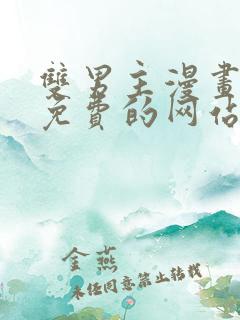 雙男主漫畫
免費的网站
金燕
未经同意禁止转载